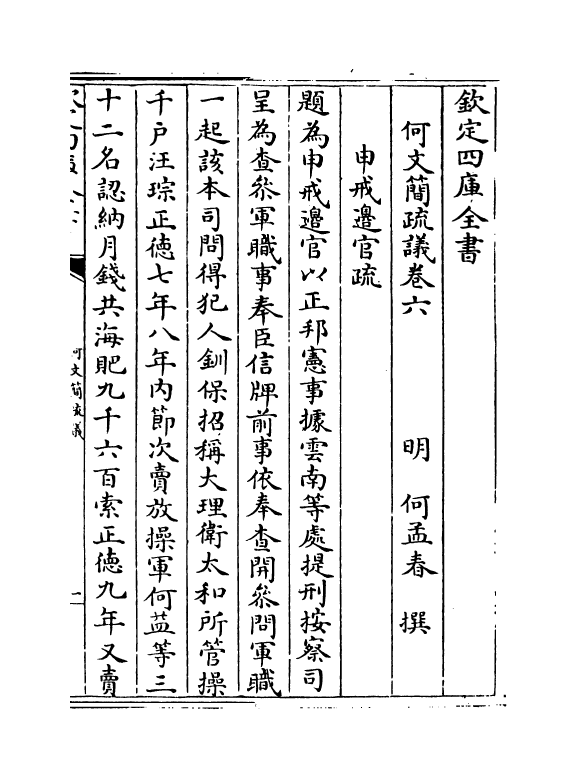 欽定四庫全書
何文簡疏議卷六
明　何孟春　撰
申戒邊官疏
題為申戒邊官以正邦憲事據雲南等處提刑按察司
呈為查叅軍職事奉臣信牌前事依奉查開叅問軍職
一起該本司問得犯人釧保招稱大理衛太和所管操
千戶汪琮正徳七年八年内節次賣放操軍何䒤等三
十二名認納月錢共海肥九千六百索正徳九年又賣
何文簡疏議
一